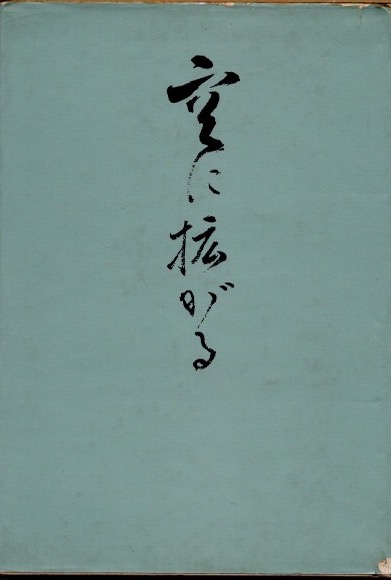 空に拡がる